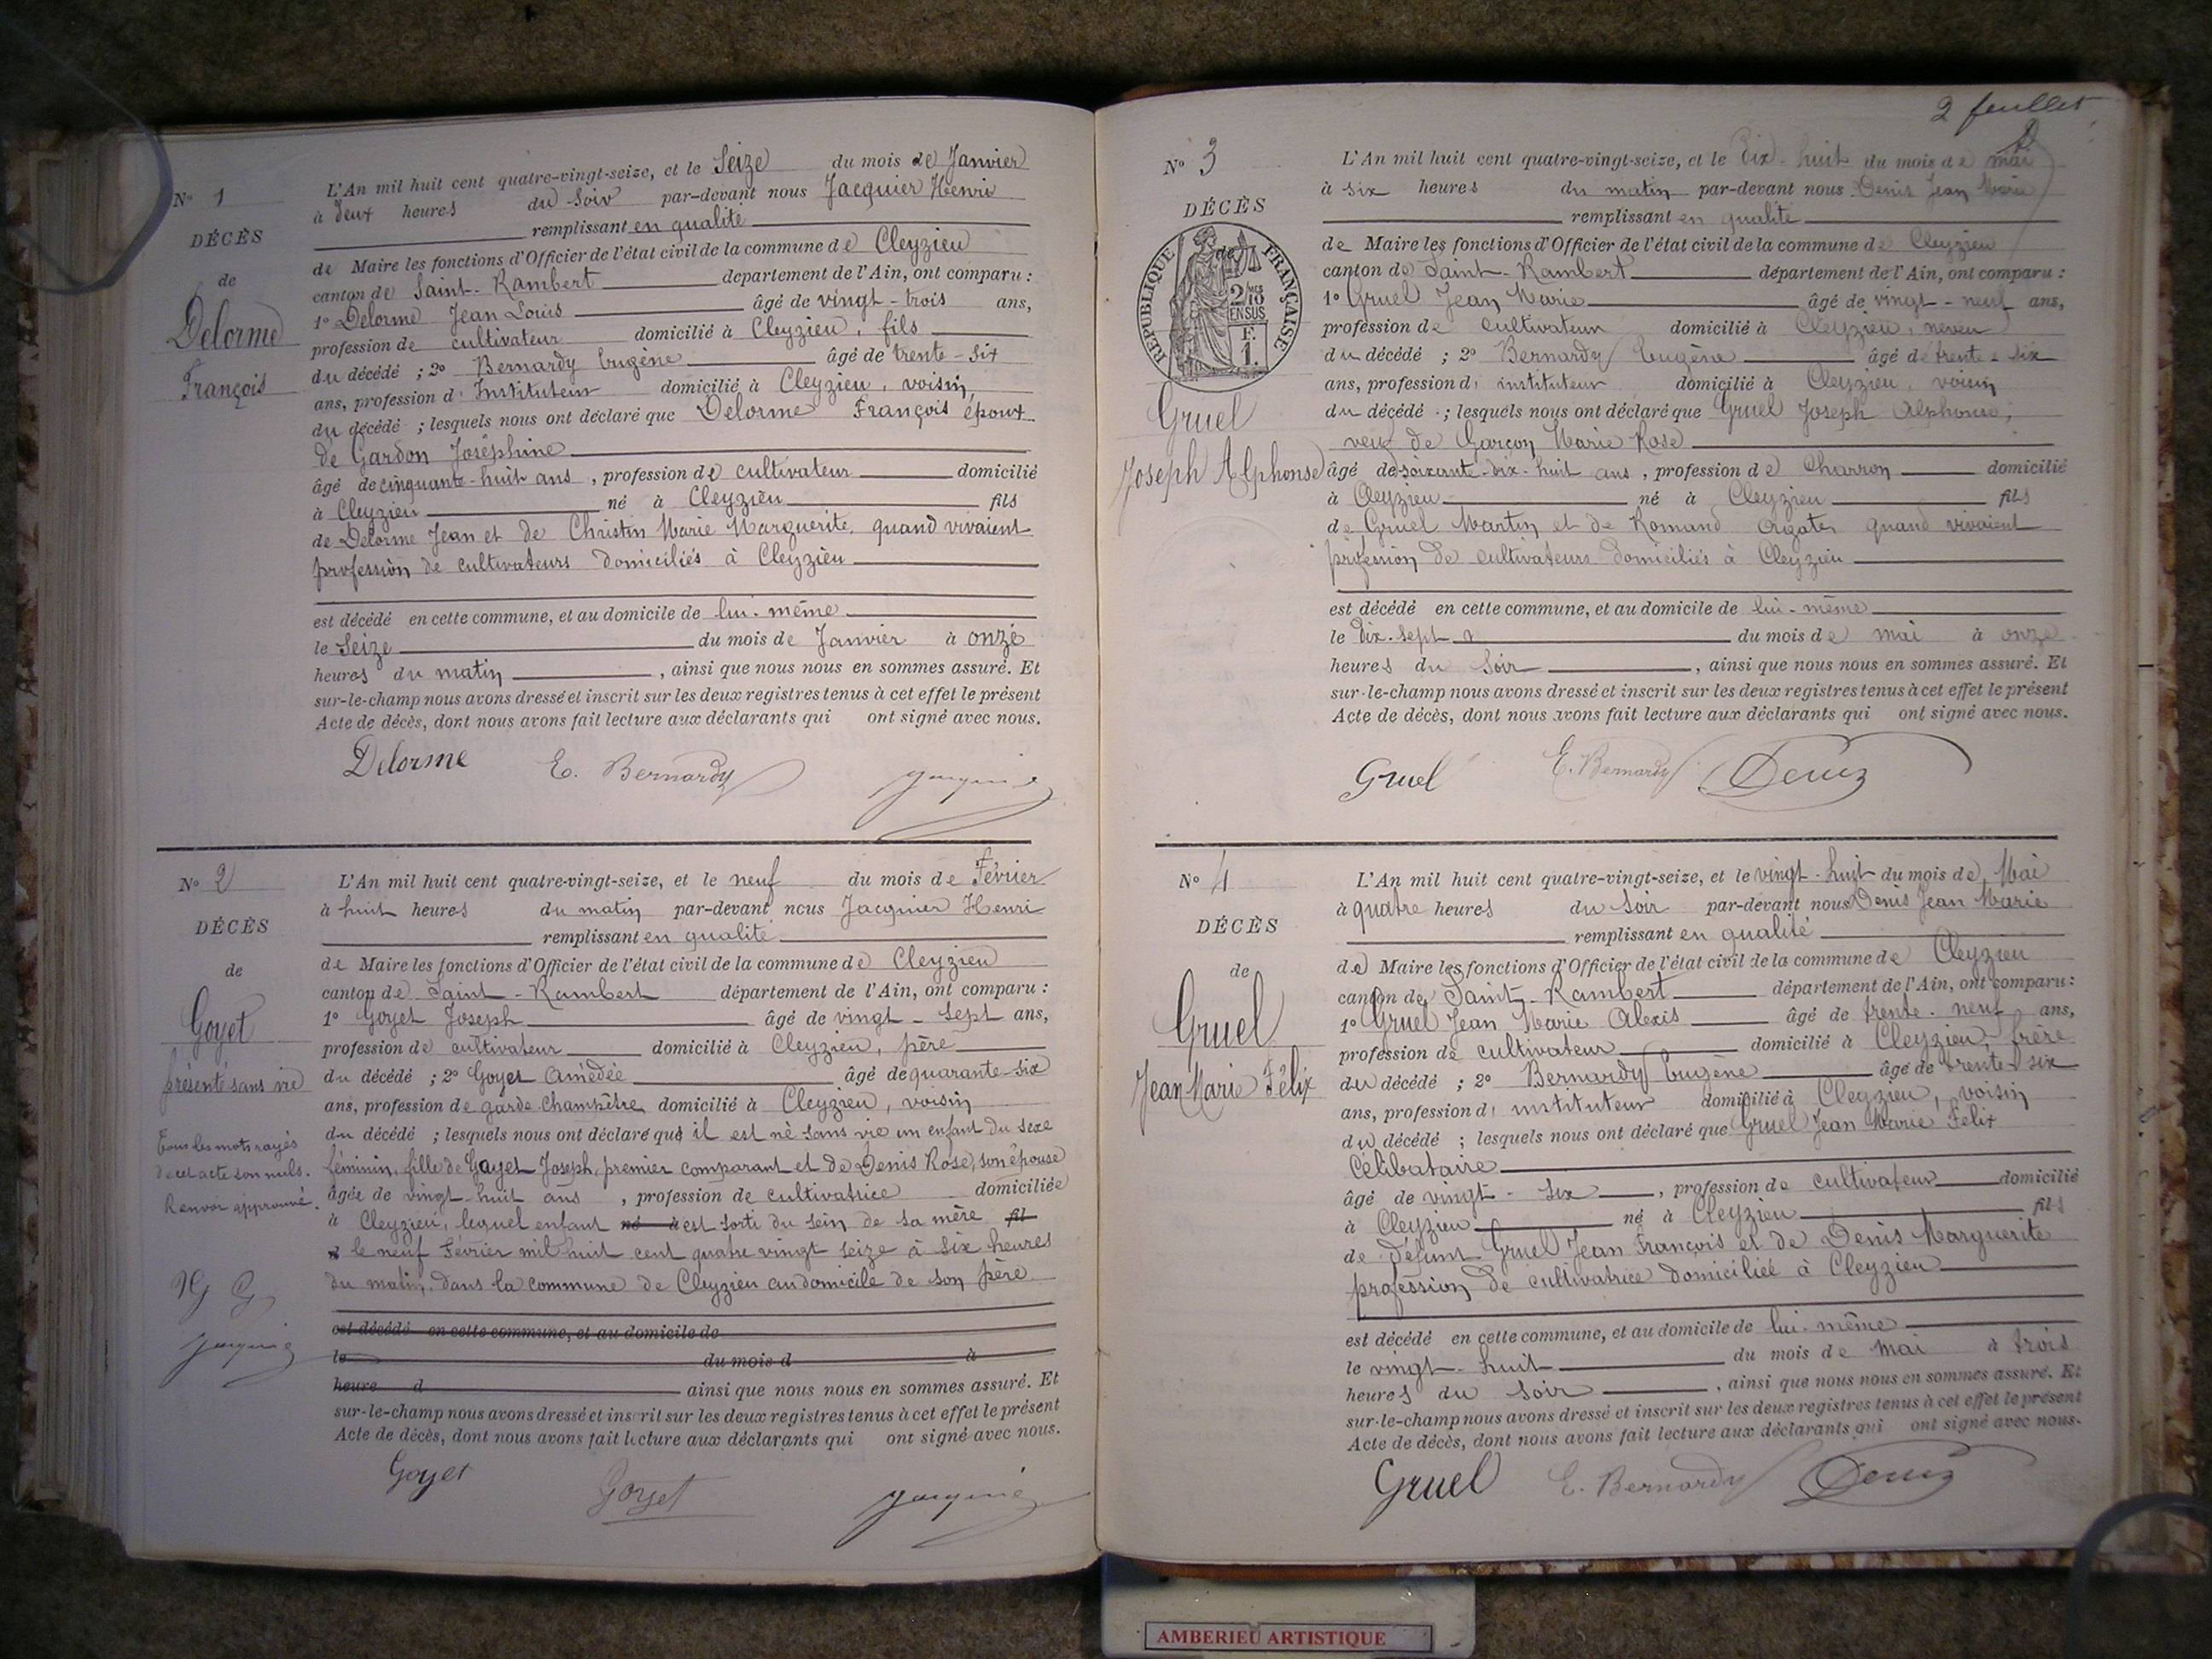 N° 1
DÉCÈS
de
Delorme
François
L'An mil huit cent quatre-vingt-seize, et le Seize du mois de Janvier
à deux heures du soir par-devant nous Jacquier Henri
remplissant en qualité
de Maire les fonctions d'Officier de l'état civil de la commune de Cleyzieu
canton de Saint-Rambert département de l'Ain, ont comparu :
1° Delorme Jean Louis âgé de vingt-trois ans,
profession de cultivateur domicilié à Cleyzieu, fils
du décédé ; 2° Bernardy Eugène âgé de trente-six
ans, profession d'Instituteur domicilié à Cleyzieu, voisin
du décédé ; lesquels nous ont déclaré que Delorme François époux
de Gardon Joséphine
âgé de cinquante-huit ans, profession de cultivateur domicilié
à Cleyzieu né à Cleyzieu fils
de Delorme Jean et de Christin Marie Marguerite quand vivaient
profession de cultivateurs domiciliés à Cleyzieu
est décédé en cette commune, et au domicile de lui-même
le Seize du mois de Janvier à onze
heures du matin, ainsi que nous nous en sommes assuré. Et
sur-le-champ nous avons dressé et inscrit sur les deux registres tenus à cet effet le présent
Acte de décès, dont nous avons fait lecture aux déclarants qui ont signé avec nous.
Delorme E. Bernardy Jacquier
N° 2
DÉCÈS
de
Goyet
présenté sans vie
Tous les mots rayés
de cet acte son nuls.
Renvoi approuvé.
JG G
Jacquier
L'An mil huit cent quatre-vingt-seize, et le neuf du mois de Février
à huit heures du matin par-devant nous Jacquier Henri
remplissant en qualité
de Maire les fonctions d'Officier de l'état civil de la commune de Cleyzieu
canton de Saint-Rambert département de l'Ain, ont comparu :
1° Goyet Joseph âgé de vingt-sept ans,
profession de cultivateur domicilié à Cleyzieu, père
du décédé ; 2° Goyet Amédée âgé de quarante-six
ans, profession de garde champêtre domicilié à Cleyzieu, voisin
du décédé ; lesquels nous ont déclaré que il est né sans vie un enfant du sexe
féminin, fille de Goyet Joseph, premier comparant et de Denis Rose, son épouse
âgée de vingt-huit ans, profession de cultivatrice domiciliée
à Cleyzieu, lequel enfant né à est sorti du sein de sa mère fil
le neuf Février mil huit cent quatre vingt seize à six heures
du matin, dans la commune de Cleyzieu au domicile de son père
est décédé en cette commune, et au domicile de
le du mois d à
heure d ainsi que nous nous en sommes assuré. Et
sur-le-champ nous avons dressé et inscrit sur les deux registres tenus à cet effet le présent
Acte de décès, dont nous avons fait lecture aux déclarants qui ont signé avec nous.
Goyet Goyet Jacquier
2 feuillet
N° 3
DÉCÈS
de
RÉPUBLIQUE FRANÇAISE
2/10 EN SUS
F.
1.
Gruel
Joseph Alphonse
L'An mil huit cent quatre-vingt-seize, et le Dix-huit du mois de mai
à six heures du matin par-devant nous Denis Jean Marie
remplissant en qualité
de Maire les fonctions d'Officier de l'état civil de la commune de Cleyzieu
canton de Saint-Rambert département de l'Ain, ont comparu :
1° Gruel Jean Marie âgé de vingt-neuf ans,
profession de cultivateur domicilié à Cleyzieu, neveu
du décédé ; 2° Bernardy Eugène âgé de trente-six
ans, profession d'instituteur domicilié à Cleyzieu, voisin
du décédé ; lesquels nous ont déclaré que Gruel Joseph Alphonse,
veuf de Garçon Marie Rose
âgé de soixante-dix-huit ans, profession de Charron domicilié
à Cleyzieu né à Cleyzieu fils
de Gruel Martin et de Romand Agate quand vivaient
profession de cultivateurs domiciliés à Cleyzieu
est décédé en cette commune, et au domicile de lui-même
le Dix-sept du mois de mai à onze
heures du soir, ainsi que nous nous en sommes assuré. Et
sur-le-champ nous avons dressé et inscrit sur les deux registres tenus à cet effet le présent
Acte de décès, dont nous avons fait lecture aux déclarants qui ont signé avec nous.
Gruel E. Bernardy Denis
N° 4
DÉCÈS
de
Gruel
Jean Marie Félix
L'An mil huit cent quatre-vingt-seize, et le vingt-huit du mois de Mai
à quatre heures du soir par-devant nous Denis Jean Marie
remplissant en qualité
de Maire les fonctions d'Officier de l'état civil de la commune de Cleyzieu
canton de Saint-Rambert département de l'Ain, ont comparu :
1° Gruel Jean Marie Alexis âgé de trente-neuf ans,
profession de cultivateur domicilié à Cleyzieu, frère
du décédé ; 2° Bernardy Eugène âgé de trente-six
ans, profession d'instituteur domicilié à Cleyzieu, voisin
du décédé ; lesquels nous ont déclaré que Gruel Jean Marie Félix
Célibataire
âgé de vingt-six, profession de cultivateur domicilié
à Cleyzieu né à Cleyzieu fils
de défunt Gruel Jean François et de Denis Marguerite
profession de cultivatrice domiciliée à Cleyzieu
est décédé en cette commune, et au domicile de lui-même
le vingt-huit du mois de mai à trois
heures du soir, ainsi que nous nous en sommes assuré. Et
sur-le-champ nous avons dressé et inscrit sur les deux registres tenus à cet effet le présent
Acte de décès, dont nous avons fait lecture aux déclarants qui ont signé avec nous.
Gruel E. Bernardy Denis
AMBERIEU ARTISTIQUE